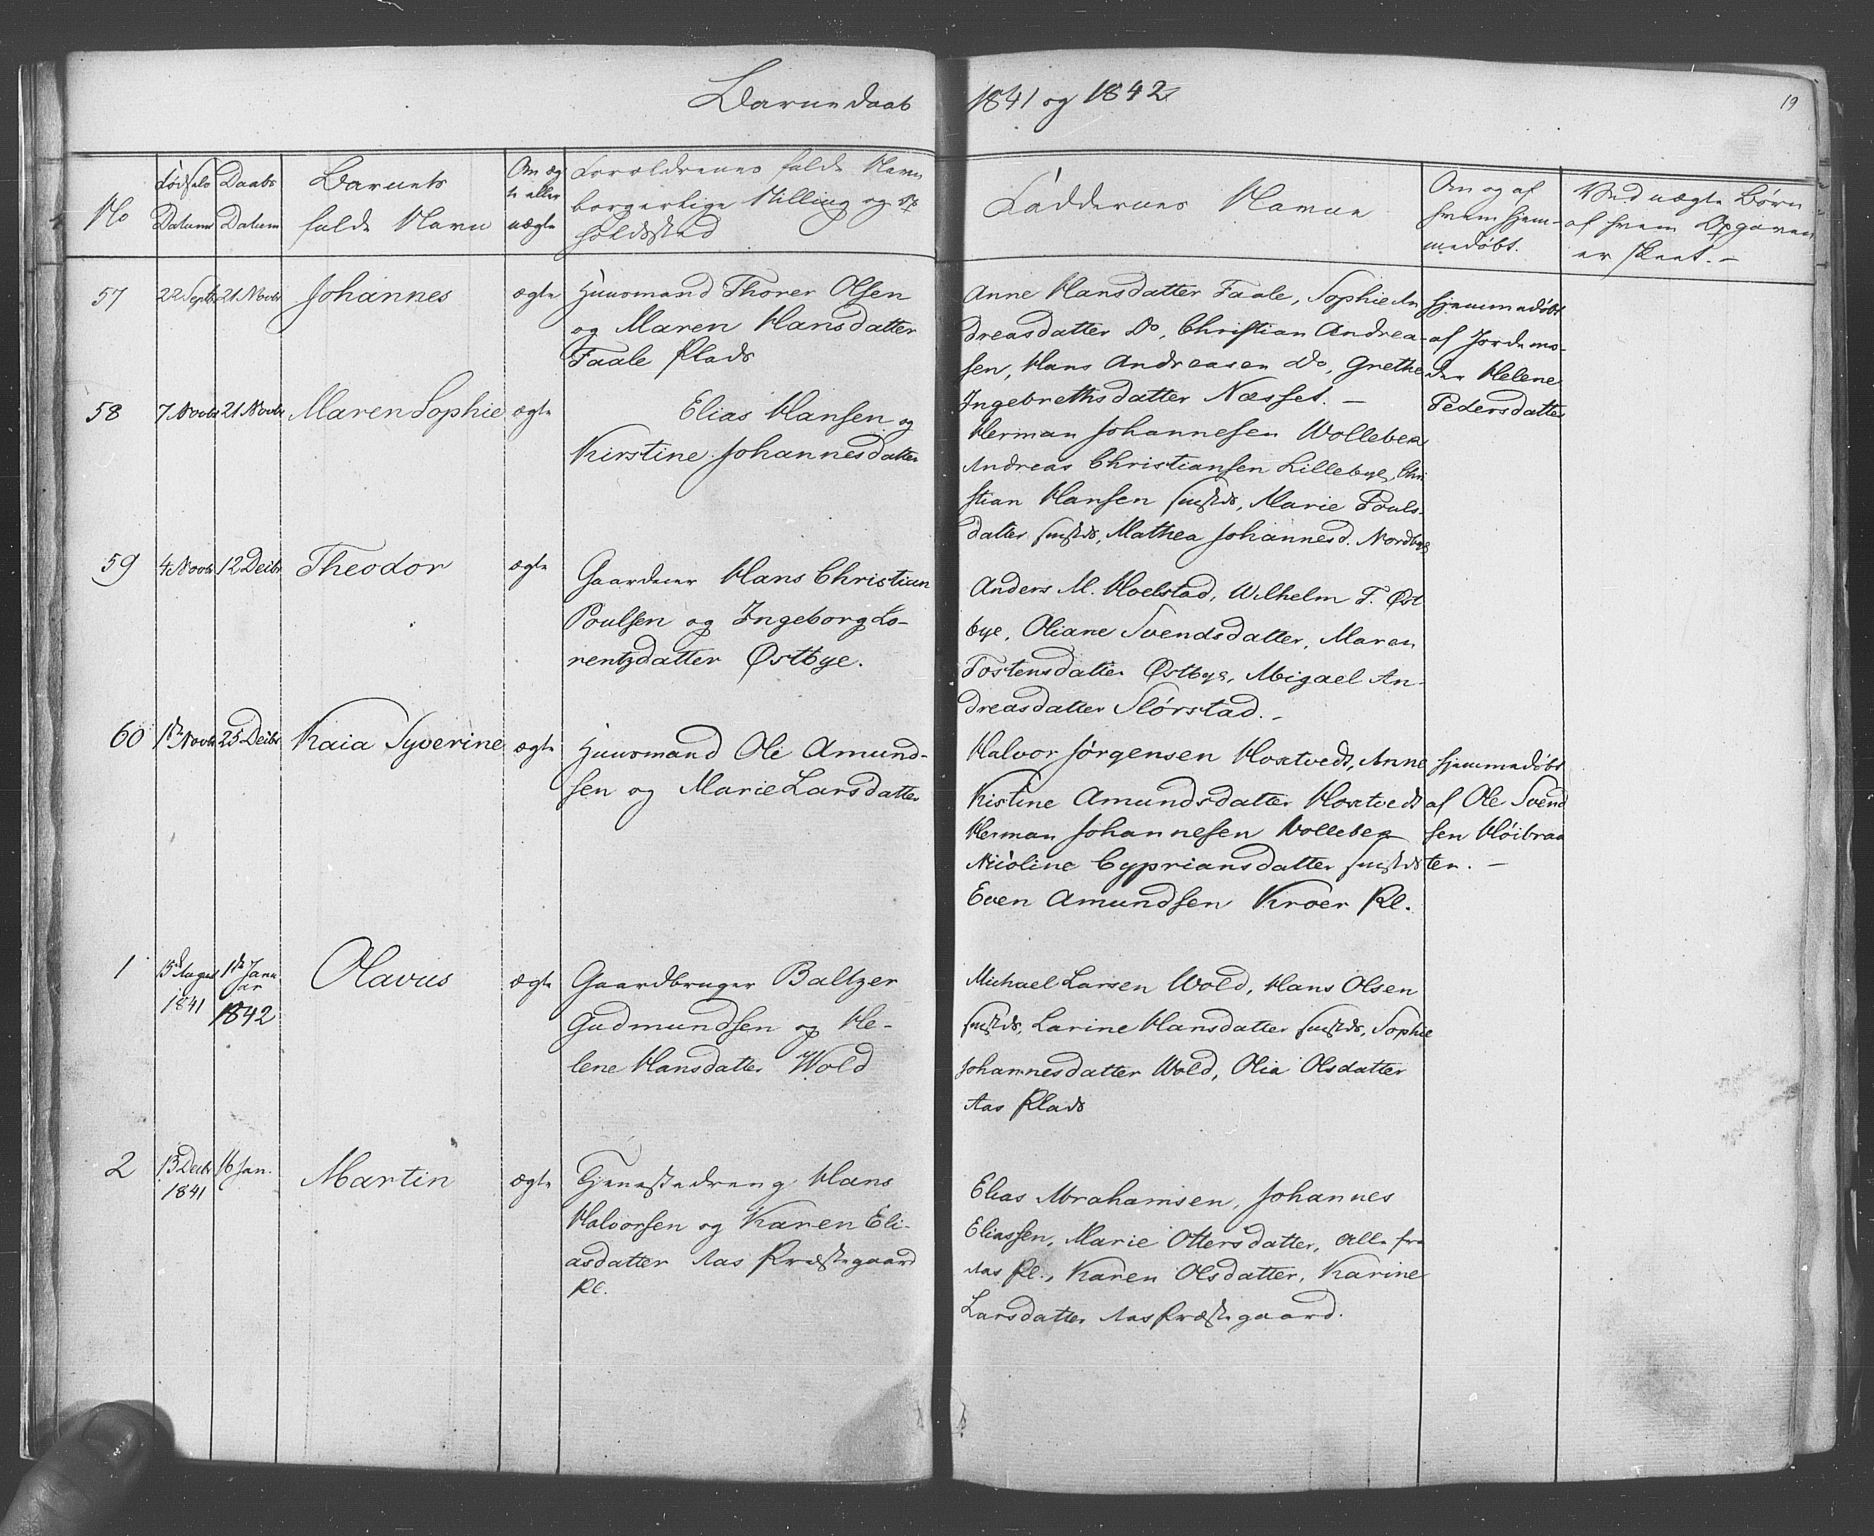 Barnedaab 1841 og 1842
19
No
Fødsels Datum
Daabs Datum
Barnets fulde Navn
Om ægte eller uægte
Forældrenes fulde Navn
borgerlige Stilling og Op
holdssted
Faddernes Navne
Om og af
hvem hjem-
medøbt.
Ved uægte Børn
af hvem Opgaven
er skeet. –
57
22 Septb
21 Novbr
Johannes
ægte
Huusmand Thorer Olsen
og Maren Hansdatter
Faale Plads
Anne Hansdatter Faale, Sophie An
dreasdatter Do, Christian Andrea-
sen, Hans Andreasen Do, Grethe
Ingebrethsdatter Næsset. –
hjemmedøbt
af Jordemo-
der Helene
Pedersdatter
58
7 Novbr
21 Novbr
Maren Sophie
ægte
Elias Hansen og
Kirstine Johannesdatter
Herman Johannesen Wollebek
Andreas Christiansen Lillebye, Chri
stian Hansen sustds, Marie Pouls-
datter sustds, Mathea Johannesd. Nordbye
59
4 Novbr
12 Decbr
Theodor
ægte
Gaardeier Hans Christian
Poulsen og Ingeborg Lo-
rentzdatter Østbye.
Anders M. Holstad, Wilhelm T. Øst
bye, Oliane Svendsdatter, Maren
Tostensdatter Østbye, Abigael An-
dreasdatter Slørstad. –
60
1ste Novbr
25 Decbr
Kaia Syverine
ægte
Huusmand Ole Amund-
sen og Marie Larsdatter
Halvor Jørgensen Hoxtvedt, Anne
Kistine Amundsdatter Hoxtvedt
Herman Johannesen Wollebek
Nicoline Cypriansdatter sustds
Even Amundsen Kroer Pl.
hjemmedøbt
af Ole Svend
sen Høibraa
ten. –
1
15d August
1841
1ste Janu
ar
1842
Olavus
ægte
Gaardbruger Baltzer
Gudmundsen og He-
lene Hansdatter Wold
Michael Larsen Wold, Hans Olsen
sustds, Larine Hansdatter sustds, Sophie
Johannesdatter Wold, Olia Olsdatter
Aas Plads
2
13 Decbr
1841
16 Jan.
Martin
ægte
Tjenestedreng Hans
Halvorsen og Karen Eli-
asdatter Aas Præstegaard
Pl.
Elias Abrahamsen, Johannes
Eliassen, Marie Ottersdatter, alle fra
Aas Pl., Karen Olsdatter, Karine
Larsdatter Aas Præstegaard.